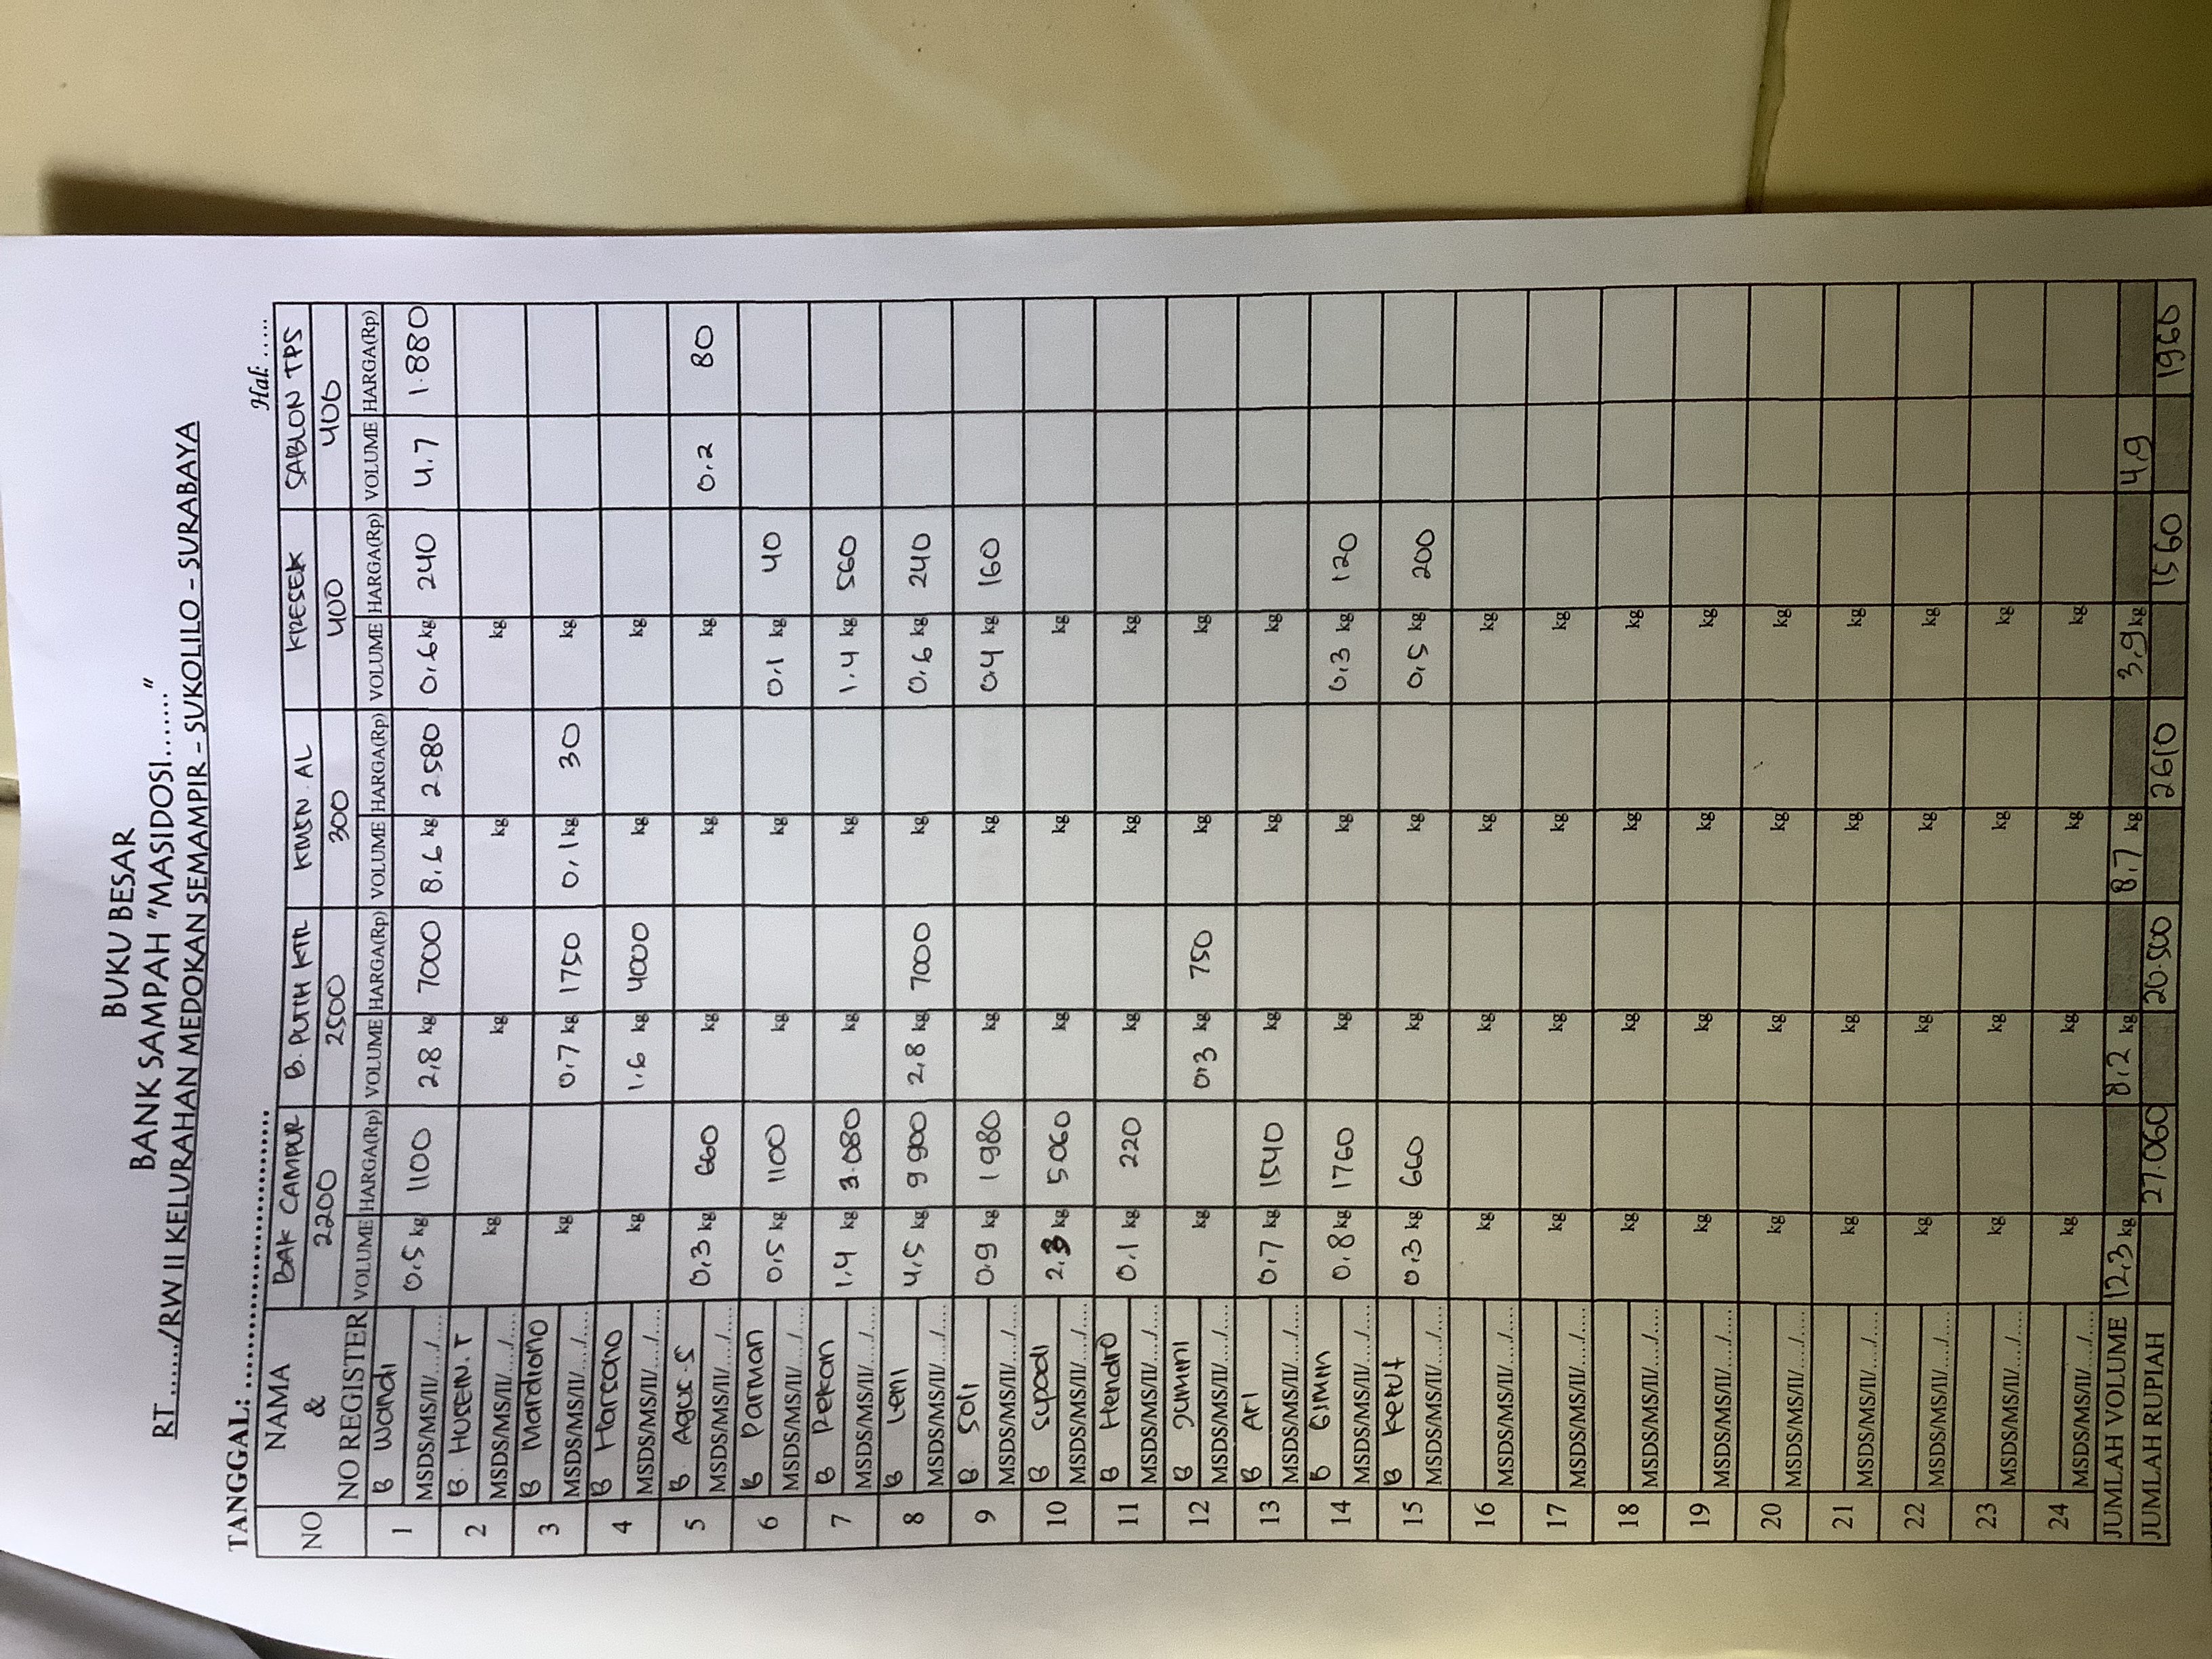 BUKU BESAR
BANK SAMPAH "MASIDOSI......."
RT ....../RW II KELURAHAN MEDOKAN SEMAMPIR - SUKOLILO - SURABAYA
TANGGAL: ................................
Hal: .....
NO NAMA & NO REGISTER BAK CAMPUR B. PUTIH KTR KMSN AL KRESEK SABLON TPS
2200 2500 300 400 400
VOLUME HARGA(Rp) VOLUME HARGA(Rp) VOLUME HARGA(Rp) VOLUME HARGA(Rp) VOLUME HARGA(Rp)
1 B Wandi
MSDS/MS/II/..../.... 0.5 kg 1100 2,8 kg 7000 8.6 kg 2580 0,6 kg 240 4.7 1.880
2 B. HUSEIN. T
MSDS/MS/II/..../.... kg kg kg kg
3 B Mardiono
MSDS/MS/II/..../.... kg 0.7 kg 1750 0,1 kg 30 kg
4 B Harsono
MSDS/MS/II/..../.... kg 1.6 kg 4000 kg kg
5 B. Agus. S
MSDS/MS/II/..../.... 0,3 kg 660 kg kg kg 0.2 80
6 B Parman
MSDS/MS/II/..../.... 0,5 kg 1100 kg kg 0.1 kg 40
7 B Pekan
MSDS/MS/II/..../.... 1.4 kg 3.080 kg kg 1.4 kg 560
8 B Leni
MSDS/MS/II/..../.... 4,5 kg 9900 2,8 kg 7000 kg 0.6 kg 240
9 B. Soli
MSDS/MS/II/..../.... 0.9 kg 1980 kg kg 0.4 kg 160
10 B Supadi
MSDS/MS/II/..../.... 2.3 kg 5060 kg kg kg
11 B Hendro
MSDS/MS/II/..../.... 0.1 kg 220 kg kg kg
12 B Jumini
MSDS/MS/II/..../.... kg 0,3 kg 750 kg kg
13 B Ari
MSDS/MS/II/..../.... 0.7 kg 1540 kg kg kg
14 B Gimin
MSDS/MS/II/..../.... 0.8 kg 1760 kg kg 0.3 kg 120
15 B Ketut
MSDS/MS/II/..../.... 0.3 kg 660 kg kg 0,5 kg 200
16
MSDS/MS/II/..../.... kg kg kg kg
17
MSDS/MS/II/..../.... kg kg kg kg
18
MSDS/MS/II/..../.... kg kg kg kg
19
MSDS/MS/II/..../.... kg kg kg kg
20
MSDS/MS/II/..../.... kg kg kg kg
21
MSDS/MS/II/..../.... kg kg kg kg
22
MSDS/MS/II/..../.... kg kg kg kg
23
MSDS/MS/II/..../.... kg kg kg kg
24
MSDS/MS/II/..../.... kg kg kg kg
JUMLAH VOLUME 12,3 kg 8,2 kg 8,7 kg 3,9 kg 4,9
JUMLAH RUPIAH 27.060 20.500 2610 1560 1960